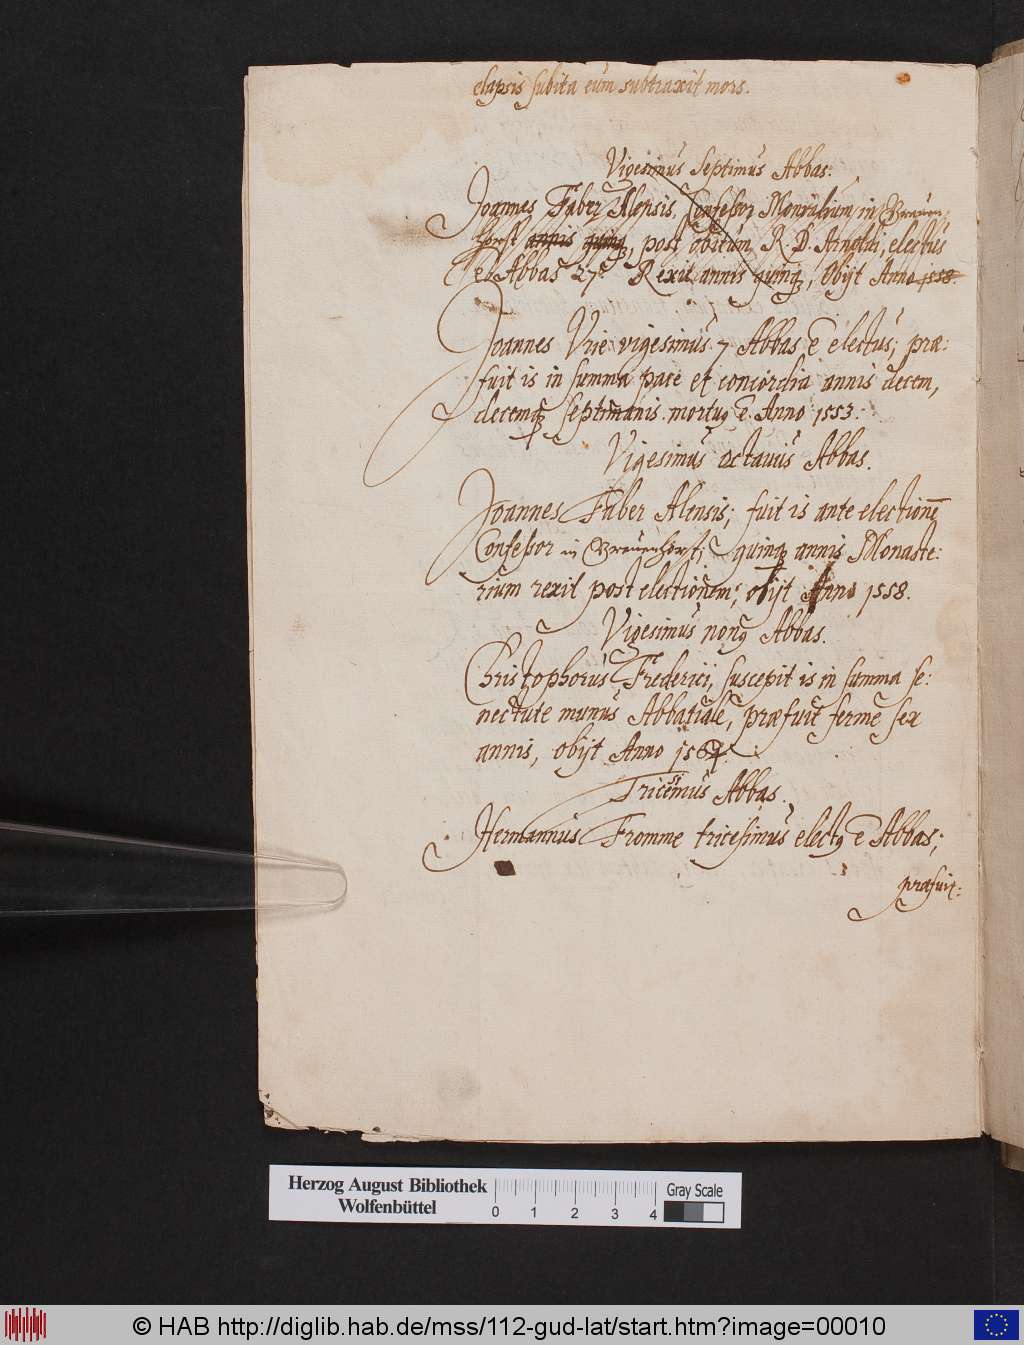 elapsis subita eum subtraxit mors.
Vigesimus Septimus Abbas.
Joannes Faber Alensis, Confessor Monialium in Brauen
horst annis quinq, post obitum R. D. Arnoldi, electus
est Abbas 27. Rexit annis quinq, obijt Anno 1558.
Joannes Vrie vigesimus 7 Abbas ē electus; præ:
fuit is in summa pace et concordia annis decem,
decemq septimanis mortuq ē. Anno 1553.
Vigesimus octauus Abbas.
Joannes Faber Alensis; fuit is ante electionē
Confessor in Brauenhorst; quinq annis Monaste:
rium rexit post electionem; obijt Anno 1558.
Vigesimus nonq Abbas.
Christophorus Frederici, suscepit is in summa se:
nectute munus Abbatiale, præfuit ferme sex
annis, obijt Anno 1564.
Tricesimus Abbas.
Hermannus Fromme tricesimus electq ē Abbas;
præfuit:
Herzog August Bibliothek
Wolfenbüttel
0 1 2 3 4
Gray Scale
© HAB http://diglib.hab.de/mss/112-gud-lat/start.htm?image=00010